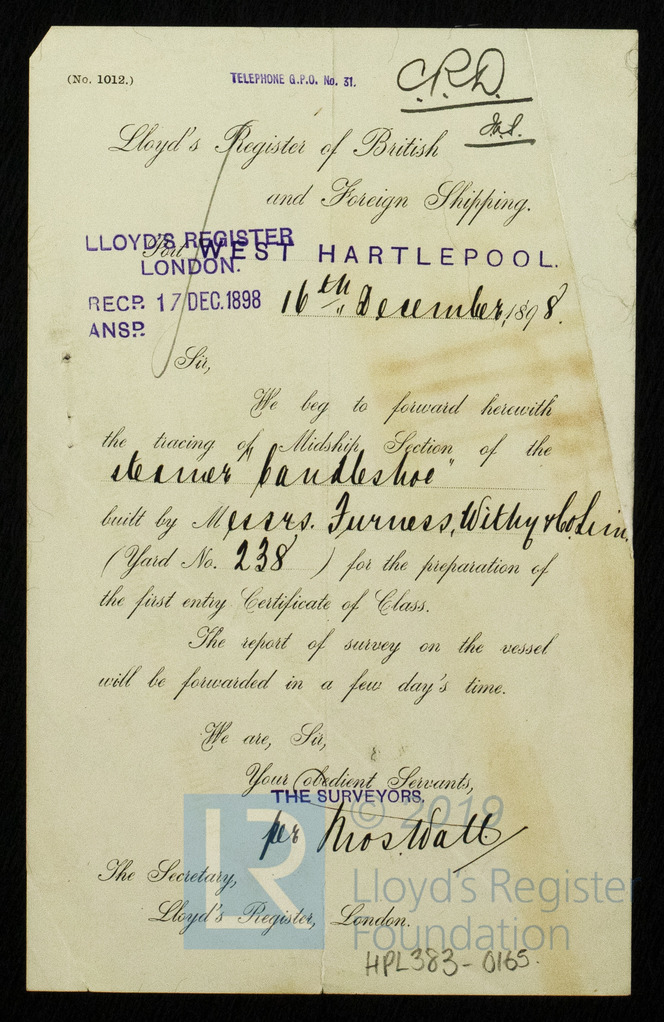 (No. 1012.)
TELEPHONE G.P.O. No. 31.
C.R.D.
Lloyd's Register of British
and Foreign Shipping.
LLOYD'S REGISTER
LONDON.
Port WEST HARTLEPOOL.
RECD. 17 DEC. 1898
ANSD.
16th December, 1898.
Sir,
We beg to forward herewith
the tracing of Midship Section of the
steamer "Candleshoe"
built by Messrs. Furness, Withy & Co. Lim.
(Yard No. 238) for the preparation of
the first entry Certificate of Class.
The report of survey on the vessel
will be forwarded in a few day's time.
We are, Sir,
Your obedient Servants,
THE SURVEYORS.
per Thos. Watt
The Secretary,
Lloyd's Register, London.
© 2019
LR
Lloyd's Register
Foundation
HPL383-0165.